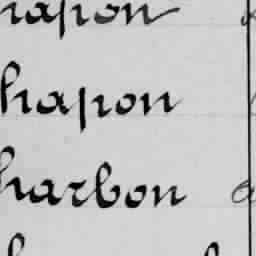 hapon
hapon
harbon